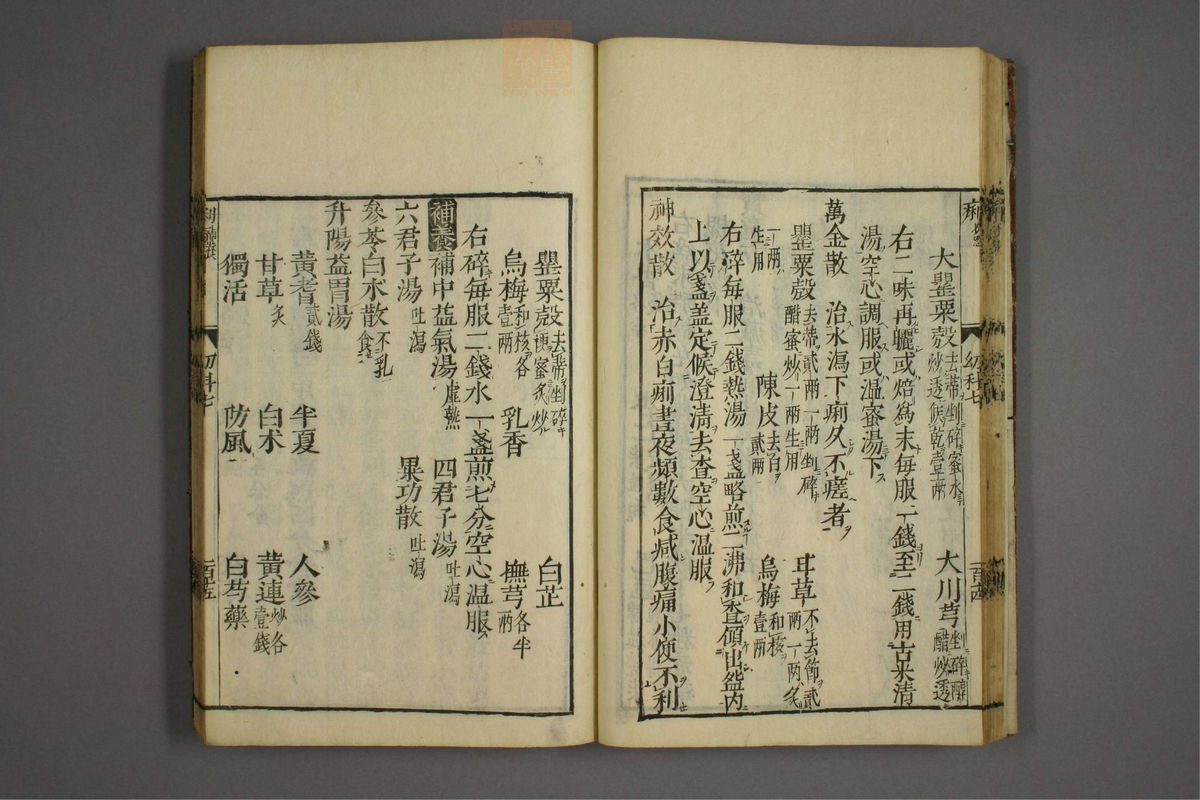 痢
幼科七
大罌粟殻去蒂剉碎蜜水炒透候乾壹兩 大川芎剉碎釅醋炒透
右二味再曬或焙爲末毎服一錢至二錢用古米清
湯空心調服或温蜜湯下
萬金散 治水瀉下痢久不瘥者
罌粟殻去蒂貳兩一兩剉碎醋蜜炒一兩生用 甘草不去節貳兩一兩炙
一兩生用 陳皮去白貳兩 烏梅和核壹兩
右碎毎服二錢熱湯一盞略煎二沸和査傾出盌内
上以盞蓋定候澄清去査空心温服
神效散 治赤白痢晝夜頻數食减腹痛小便不利
罌粟殻去蒂剉碎便蜜炙炒 乳香 白芷
烏梅和核各壹兩 撫芎各半兩
右碎毎服二錢水一盞煎七分空心温服
補養補中益氣湯虚熱 四君子湯吐瀉
六君子湯吐瀉 異功散吐瀉
參苓白朮散不乳食
升陽益胃湯
黄耆貳錢 半夏 人參
甘草炙 白朮 黄連炒各壹錢
獨活 防風 白芍藥
幼科七